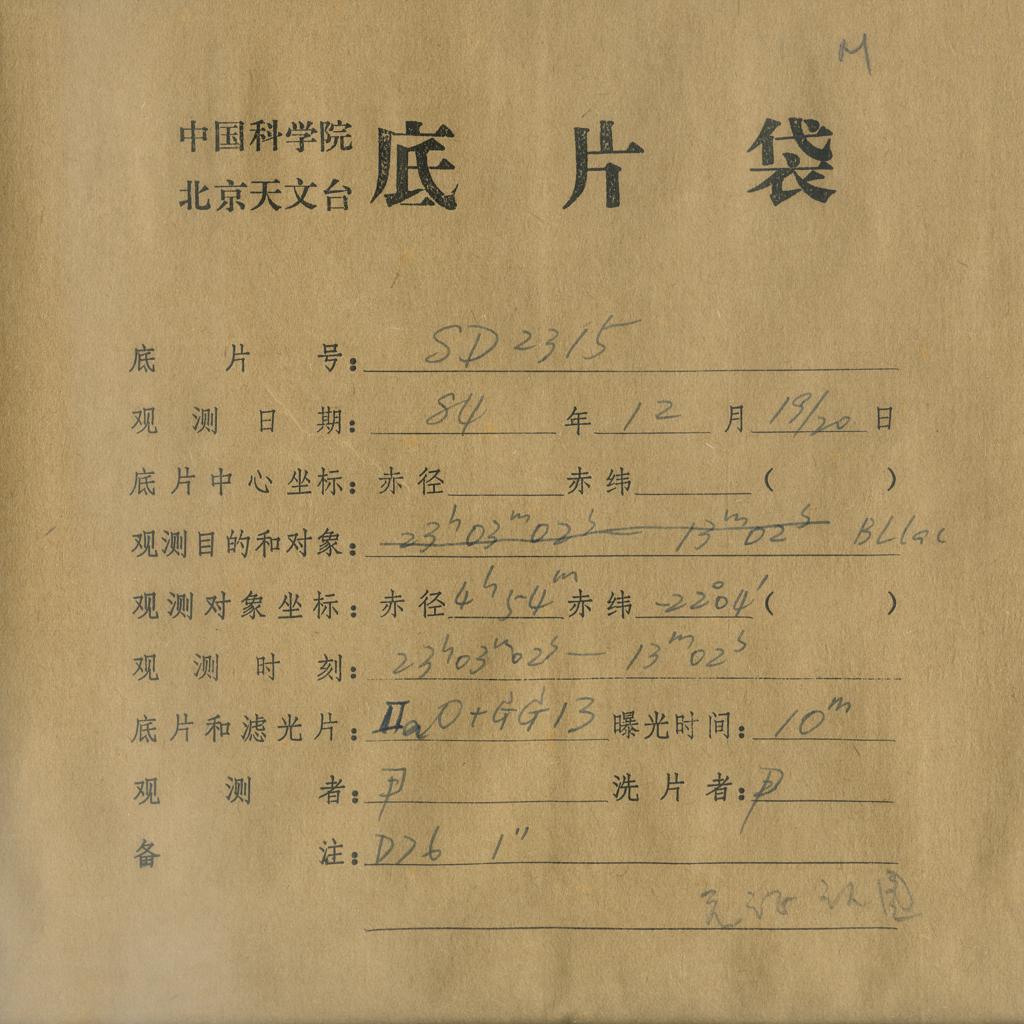 M
中国科学院
北京天文台
底片袋
底片号：SD2315
观测日期：84年12月19/20日
底片中心坐标：赤径 赤纬 （ ）
观测目的和对象：23h03m02s — 13m02s BLlac
观测对象坐标：赤径4h54m赤纬-22°04′（ ）
观测时刻：23h03m02s — 13m02s
底片和滤光片：IIaO+GG13 曝光时间：10m
观测者： 洗片者：
备注：D76 1″
图